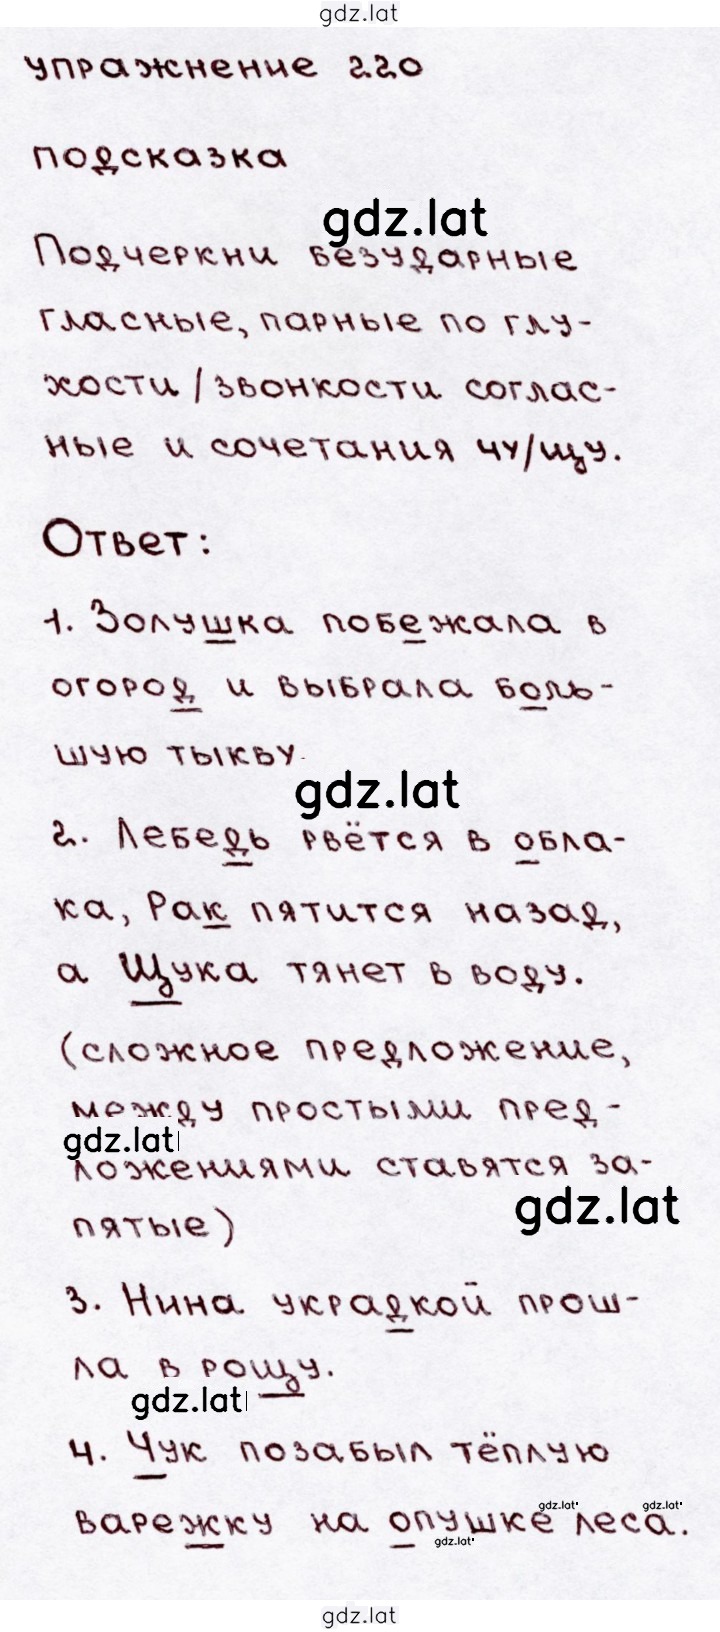 gdz.lat
упражнение 220
подсказка
gdz.lat
Подчеркни безударные
гласные, парные по глу-
хости/звонкости соглас-
ные и сочетания чу/щу.
Ответ:
1. Золушка побежала в
огород и выбрала боль-
шую тыкву.
gdz.lat
2. Лебедь рвётся в обла-
ка, Рак пятится назад,
а Щука тянет в воду.
(сложное предложение,
между простыми пред-
gdz.lat
ложениями ставятся за-
gdz.lat
пятые)
3. Нина украдкой прош-
ла в рощу.
gdz.lat
4. Чук позабыл тёплую
gdz.lat gdz.lat
варежку на опушке леса.
gdz.lat
gdz.lat